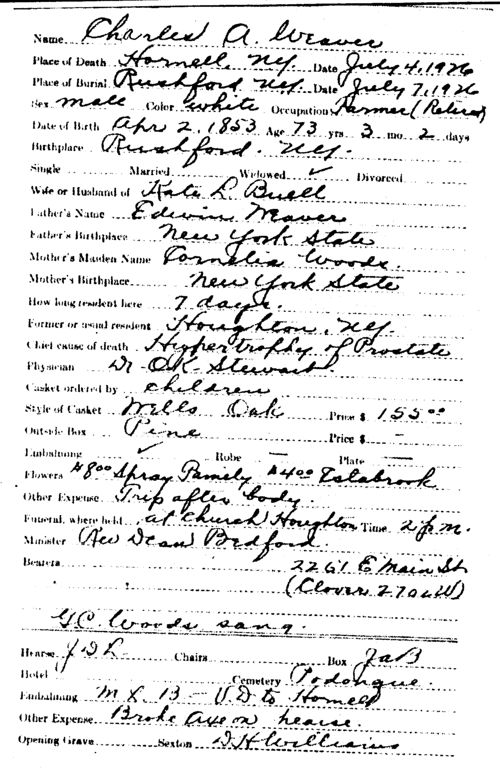 Name Charles A. Weaver
Place of Death Hornell, N.Y. Date July 4, 1926
Place of Burial Rushford N.Y. Date July 7, 1926
Sex male Color white Occupation Farmer (Retired)
Date of Birth Apr 2, 1853 Age 73 yrs 3 mo 2 days
Birthplace Rushford, N.Y.
Single Married Widowed ✓ Divorced
Wife or Husband of Kate L. Buell
Father's Name Edwin Weaver
Father's Birthplace New York State
Mother's Maiden Name Cornelia Woods.
Mother's Birthplace New York State
How long resident here 7 days.
Former or usual resident Houghton, N.Y.
Chief cause of death Hypertrophy of Prostate
Physician Dr. O.K. Stewart
Casket ordered by children
Style of Casket Wells Oak Price $ 155.00
Outside Box Pine Price $ —
Embalming ✓ Robe — Plate —
Flowers $8.00 Spray Family $4.00 Estabrook
Other Expense Trip after body.
Funeral, where held at Church Houghton Time 2 p.m.
Minister Rev Dean Bedford
Bearers 2261 E Main St
(Clover 2706W)
G.C. Woods sang.
Hearse J D L Chairs Box JaB
Hotel Cemetery Podonque.
Embalming M X. 13 - V.D. to Hornell
Other Expense Broke Axe on hearse.
Opening Grave Sexton D.H. Williams